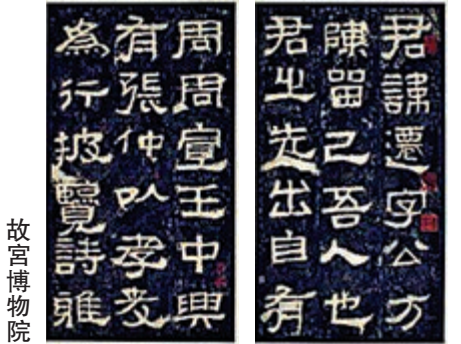 君諱遷字公方
陳留己吾人也
君之先出自有
周周宣王中興
有張仲以孝友
為行披覽詩雅
故宮博物院